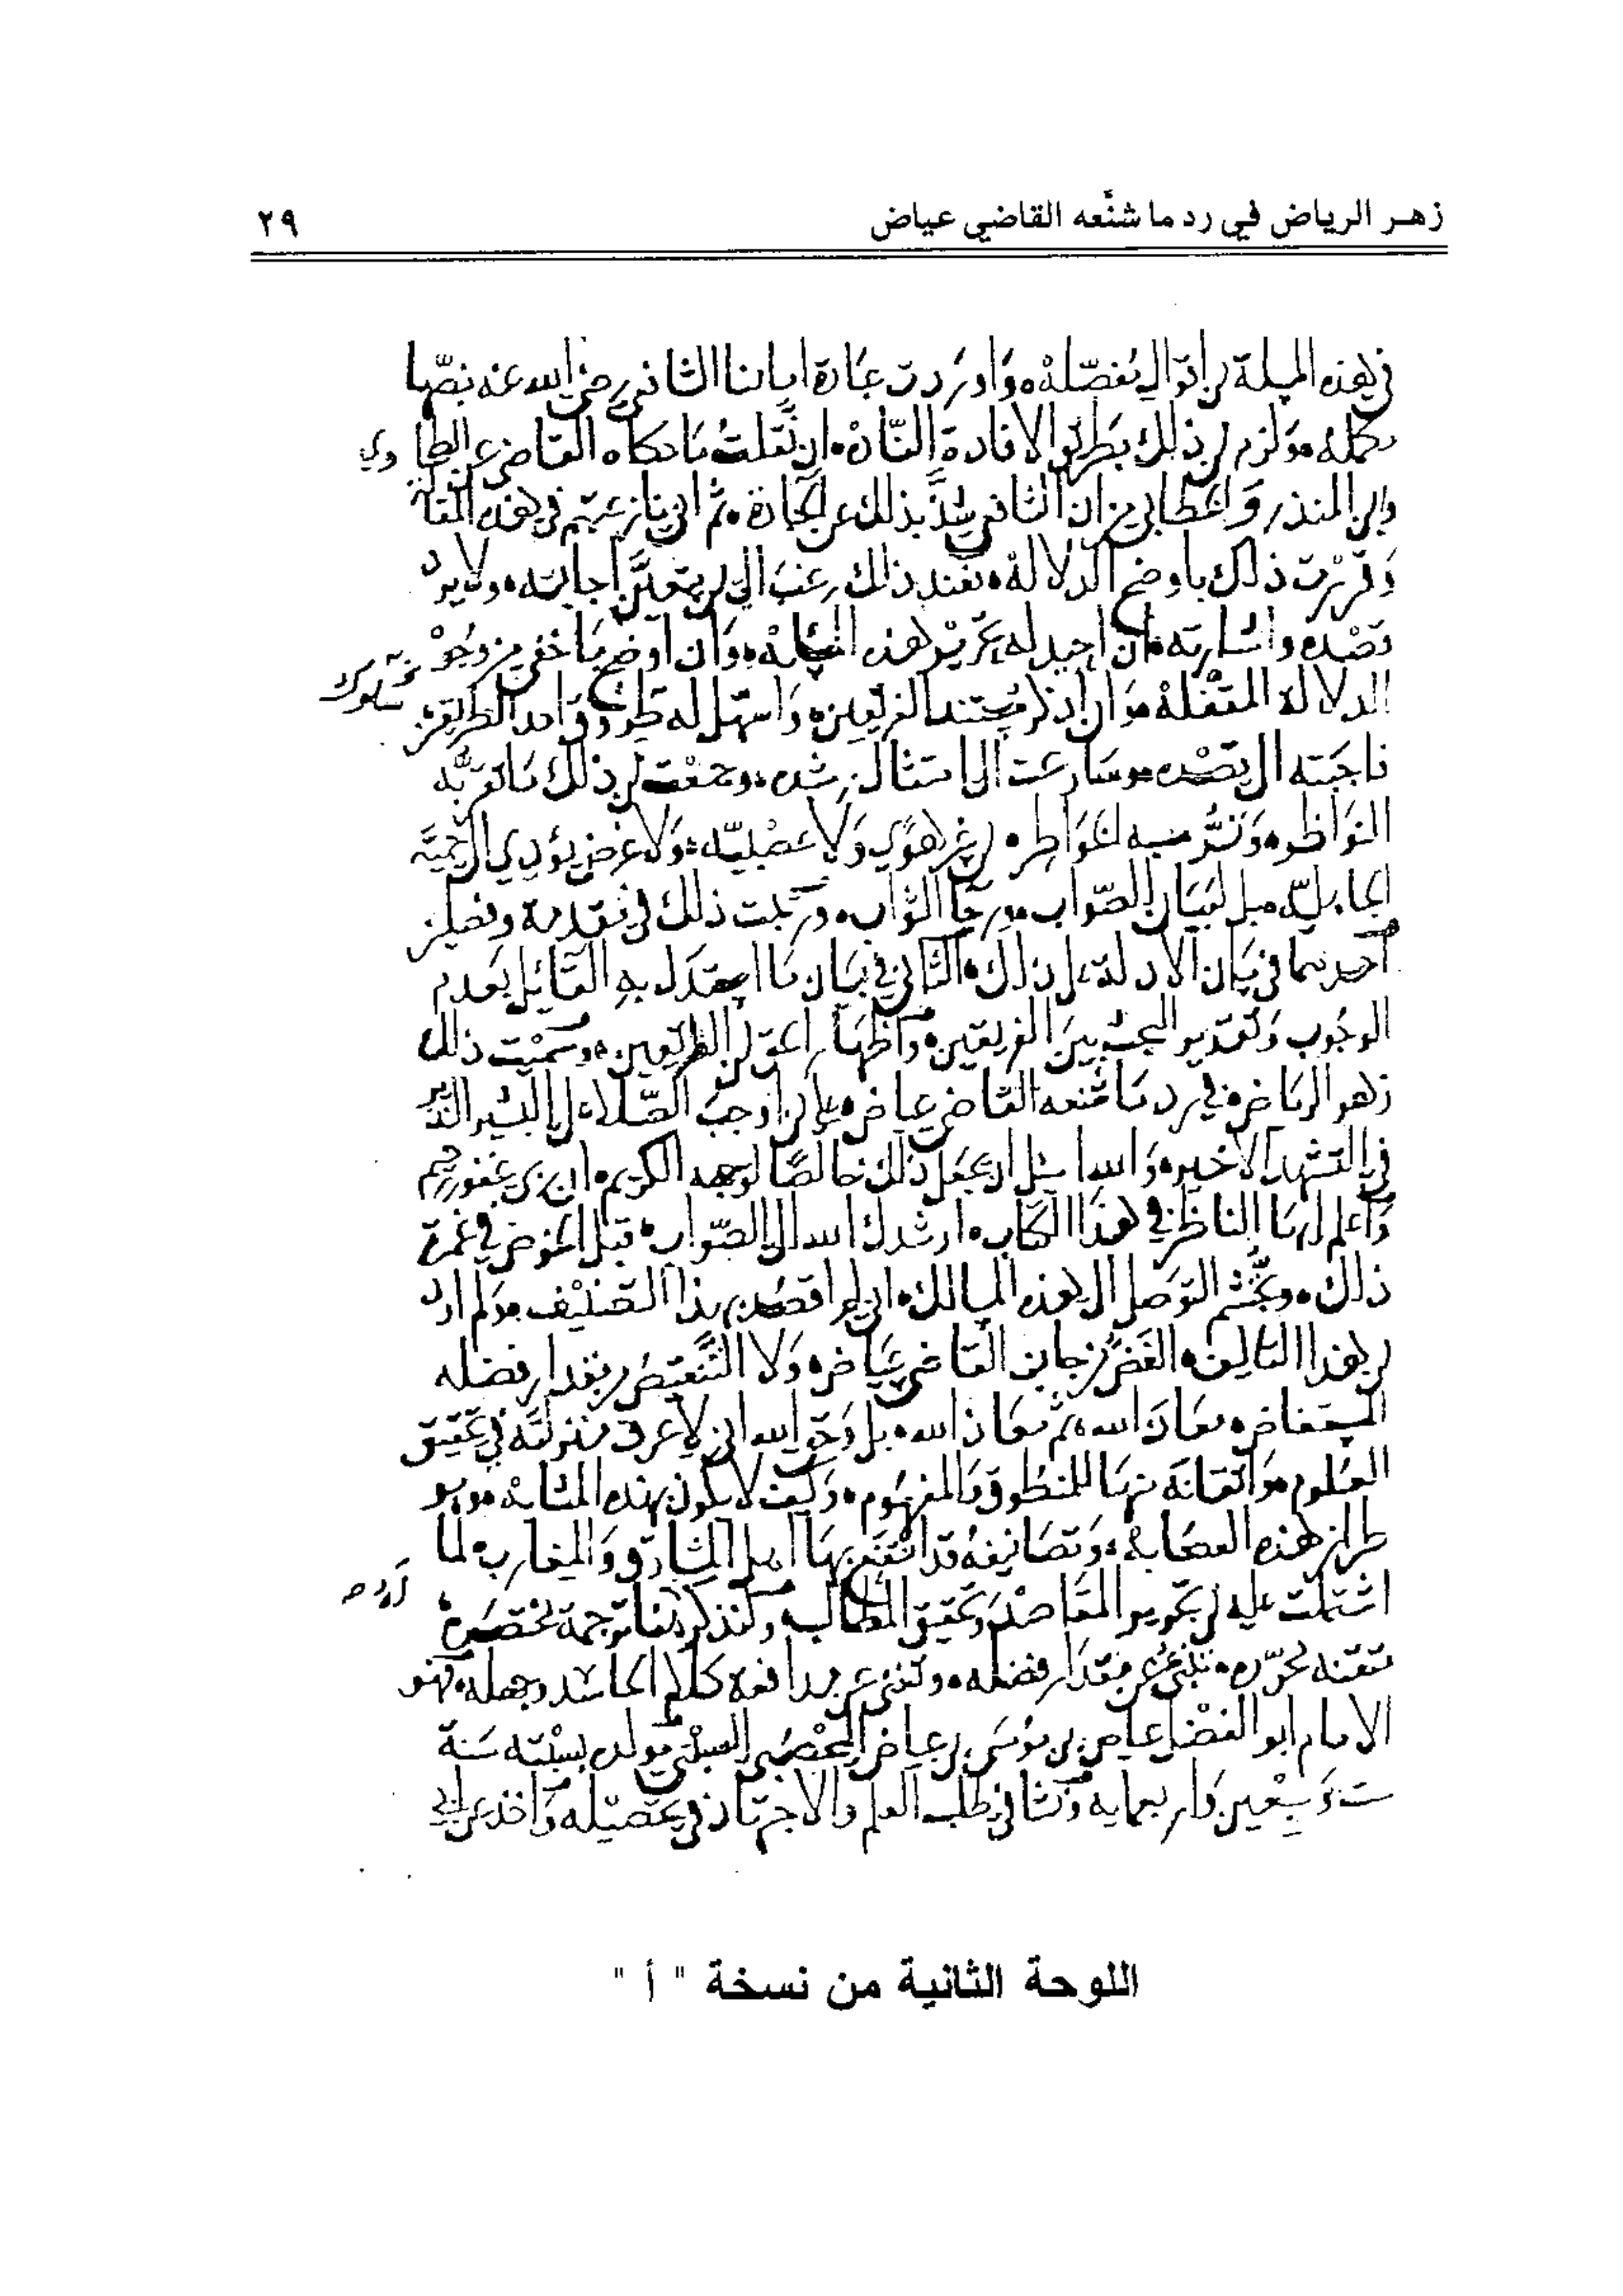 زهر الرياض في رد ما شنَّعه القاضي عياض
٢٩
في هذه المسلة من اقوال مفصّلة وَاوردت عبَارة امامنا الشافعي رضي الله عنه بنصّها
مكمله ولزم من ذلك بطريق الافادة ان نقلتُ مَا حكاه القاضي عن الطحاوي
وابن المنذر وَالخطابي من ان الشافعي شذَّ بذلك عن الجادة ثم اني نازعتهم في هذه المقالة
وَقررت ذلك باوضح الدلالة فعند ذلك رغبَ اليّ من يتعيَّن اجابته ولا يرد
قصْده واشارته ان اجيد له تحريْر هذه المسْالة وَان اوضح مَا خفي من وجُوْه
الدلالة وَان اذكر مُستند الفريقين وَاسهّل له طروق احد الطريقين
سلوك
فاجبته الى قصْده وسَارعت الى امتثال رشده وجمعْت من ذلك مَا تقر به
النوَاظر وَتسُّر به الخوَاطر من غير هوًي وَلا عصْبيّة وَلا غرض يؤدي الى حميّة
الجاهليّة بل لبيَان الصّواب ورجَا الثواب ورتبت ذلك في مقدمة وفصلين
أحدهما في بيَان الادلة على ذلك الثاني في بيَان مَا استدَل بهِ القائل بعَدم
الوجُوب وَتقدير البحث بينَ الفريقين وَاظهَار الحق من الطريقين وسمّيْت ذلك
زهر الرياض في رد مَا شنعه القاضي عياض على من اوجبَ الصّلاة على البشير النذير
في التشهد الاخير وَالله اسئل ان يجعَل ذلك خالصًا لوجهه الكريم ان ربي غفور رحيم
وَاعلم ايهَا الناظر في هذا الكتاب ارشدك الله الى الصّواب قبل الخوض في غمرة
ذلك وتجَشّم التوَصل الى هذه المسالك اني لم اقصد بهذا التصْنيْف ولم ارد
من هذا التاليف الغَضّ من جانب القاضي عيَاض وَلا التنْقيصَ من مقدار فضله
المستفاض معَاذ الله ثم معَاذ الله بل وَحق الله اني لاعرف منزلته في تحقيق
العُلوم وَاتقانَه منهَا للمنطوق وَالمفهُوم وَكيف لا يكون بهذه المثابة وهو
طراز هذه العصَابة وَتصَانيفه قد انتفع بهَا اهل المشارق وَالمغارب لما
اشتملت عليه من تحرير المقَاصدْ وَتحقيق المطالب ولنذكر هنا ترجمة مختصَرة
متقنه محرّره تنبي عن مقدَار فضله وتغني عن مدافعة كلام الحاسد وجهله فهو
الامام ابو الفضْل عياض بن موسَى بن عياض اليحْصُبي السبْتي مولده بسبْته سَنة
ست وَسبْعين وَاربعمايه وَنشا في طلب العلم والاجتهاد في تحصيله وَاخذ عن ابي
اللوحة الثانية من نسخة " أ "